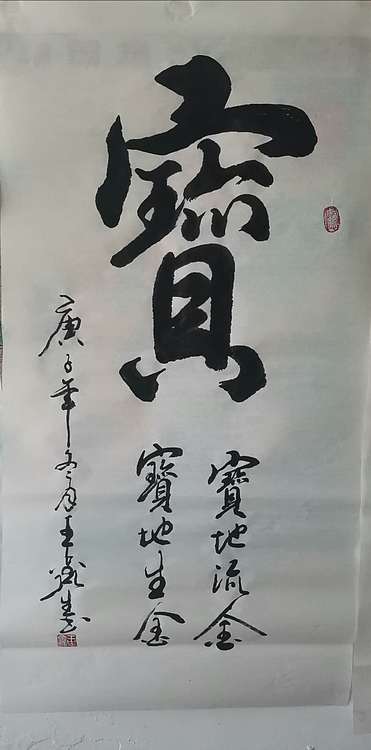 寶
寶地流金
寶地生金
庚子年冬月王